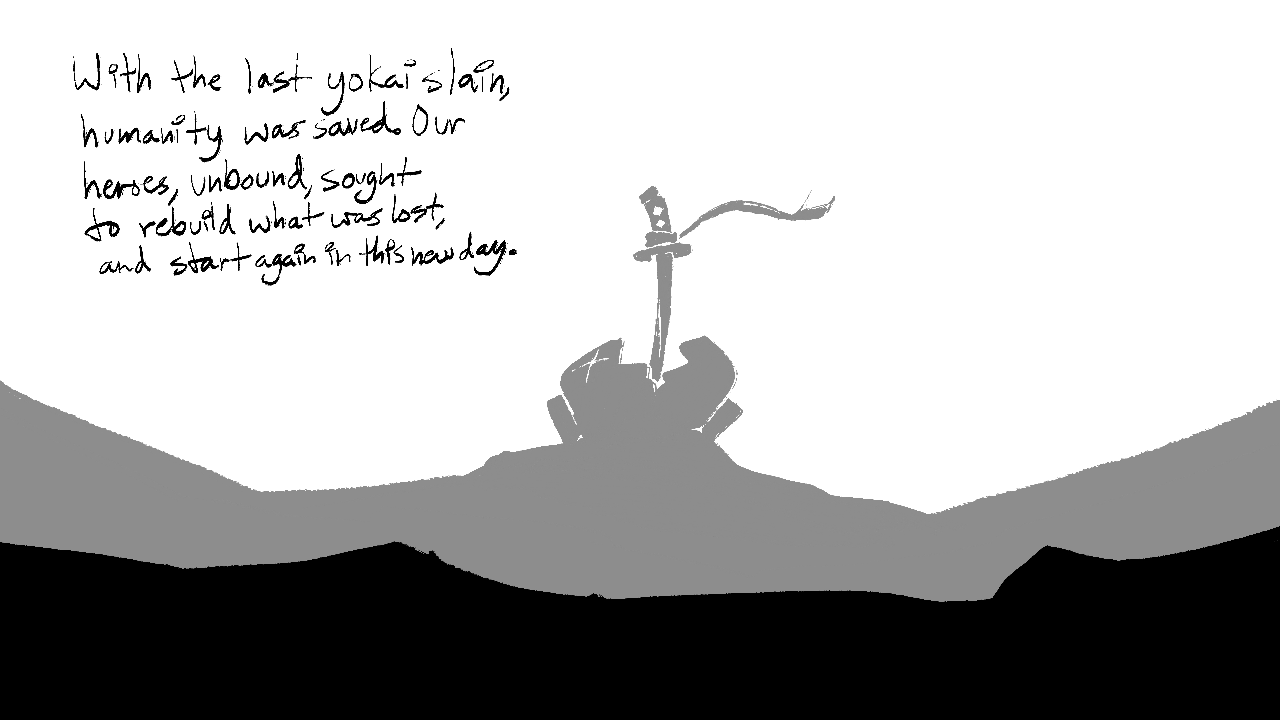 With the last yokai slain,
humanity was saved. Our
heroes, unbound, sought
to rebuild what was lost,
and start again in this new day.